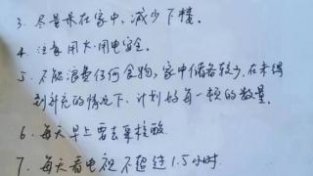 3. 尽量呆在家中、减少下楼。
4. 注意用火·用电安全。
5. 不能浪费任何食物，家中储备较少，在未得
到补充的情况下，计划好每一顿的数量。
6. 每天早上要去采核酸
7. 每天看电视不超过1.5小时.